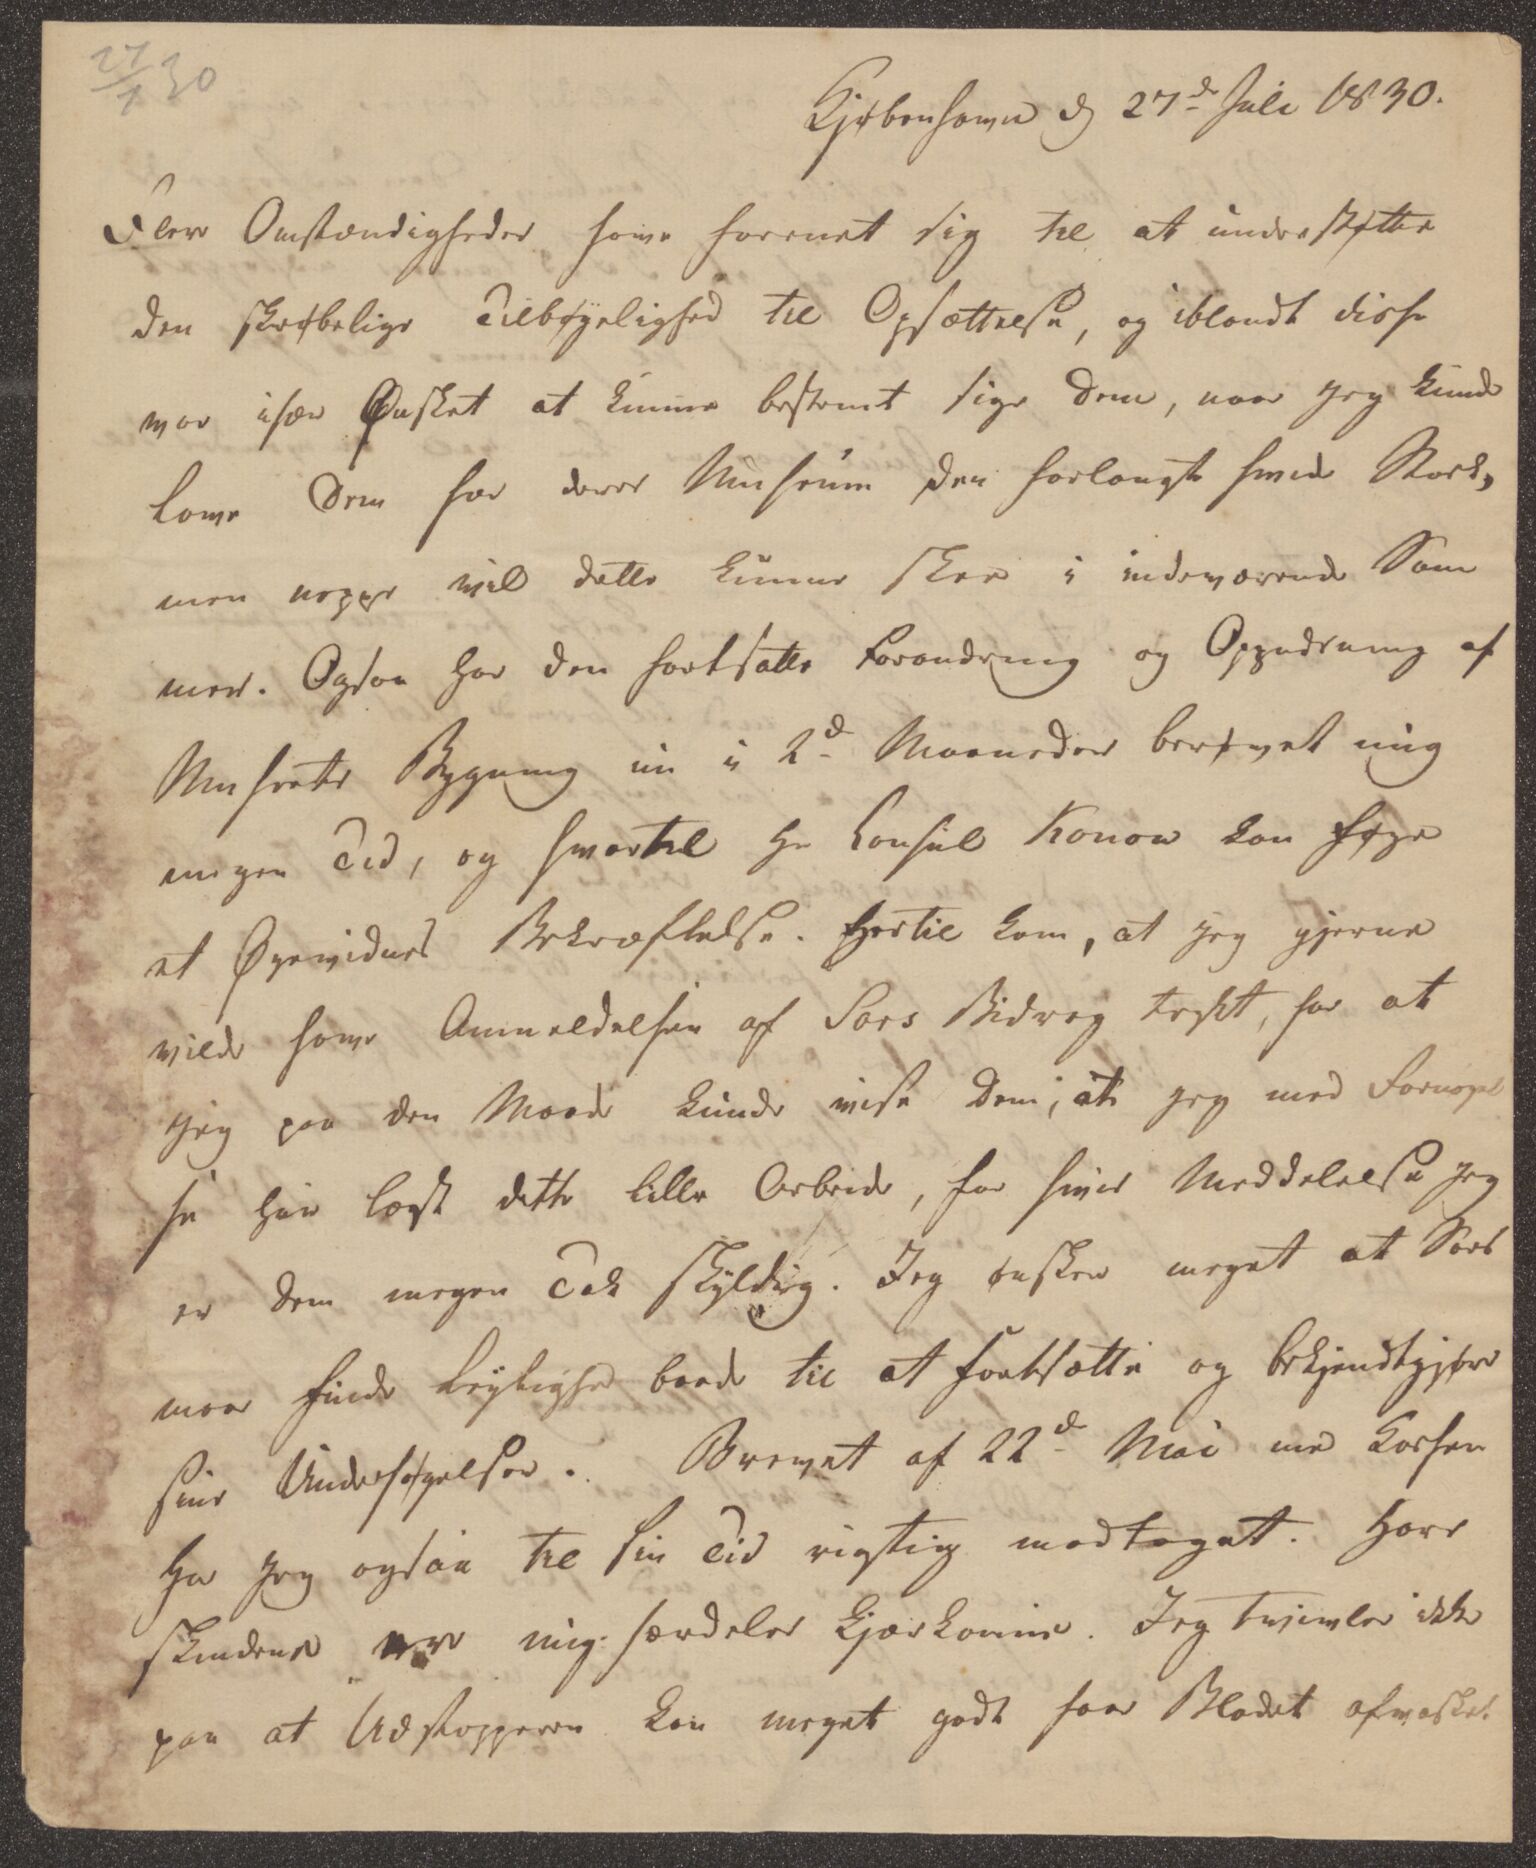 27/7 30
Kjøbenhavn d 27d Juli 1830.
Flere Omstændigheder have forenet sig til at understøtte
den skrøbelige Tilbøyelighed til Opsættelse, og iblandt disse
var især Ønsket at kunne bestemt sige Dem, naar jeg kunde
love Dem for deres Museum den forlangte hvide Stork,
men neppe vil dette kunne skee i indeværende Som
mer. Ogsaa har den fortsatte Forandring og Oppudsning af
Museets Bygning nu i 2d Maaneder berøvet mig
megen Tid, og hvortil Hr Consul Konow kan føye
et Øyevidnes Bekræftelse. Hertil kom, at jeg gjerne
vilde have Anmeldelsen af Sars Bidrag trykt, for at
jeg paa den Maade kunde vise Dem, at jeg med Fornøyel
se har læst dette lille Arbeide, for hvis Meddelelse jeg
er Dem megen Tak skyldig. Jeg ønsker meget at Sars
maa finde Leylighed baade til at fortsætte og bekjendtgjøre
sine Undersøgelser. Brevet af 22d Mai med Kassen
har jeg ogsaa til sin Tid rigtig modtaget. Hare
skindene vare mig særdeles kjærkomne. Jeg tvivler ikke
paa at Udstopperen kan meget godt faae Blodet afvasket